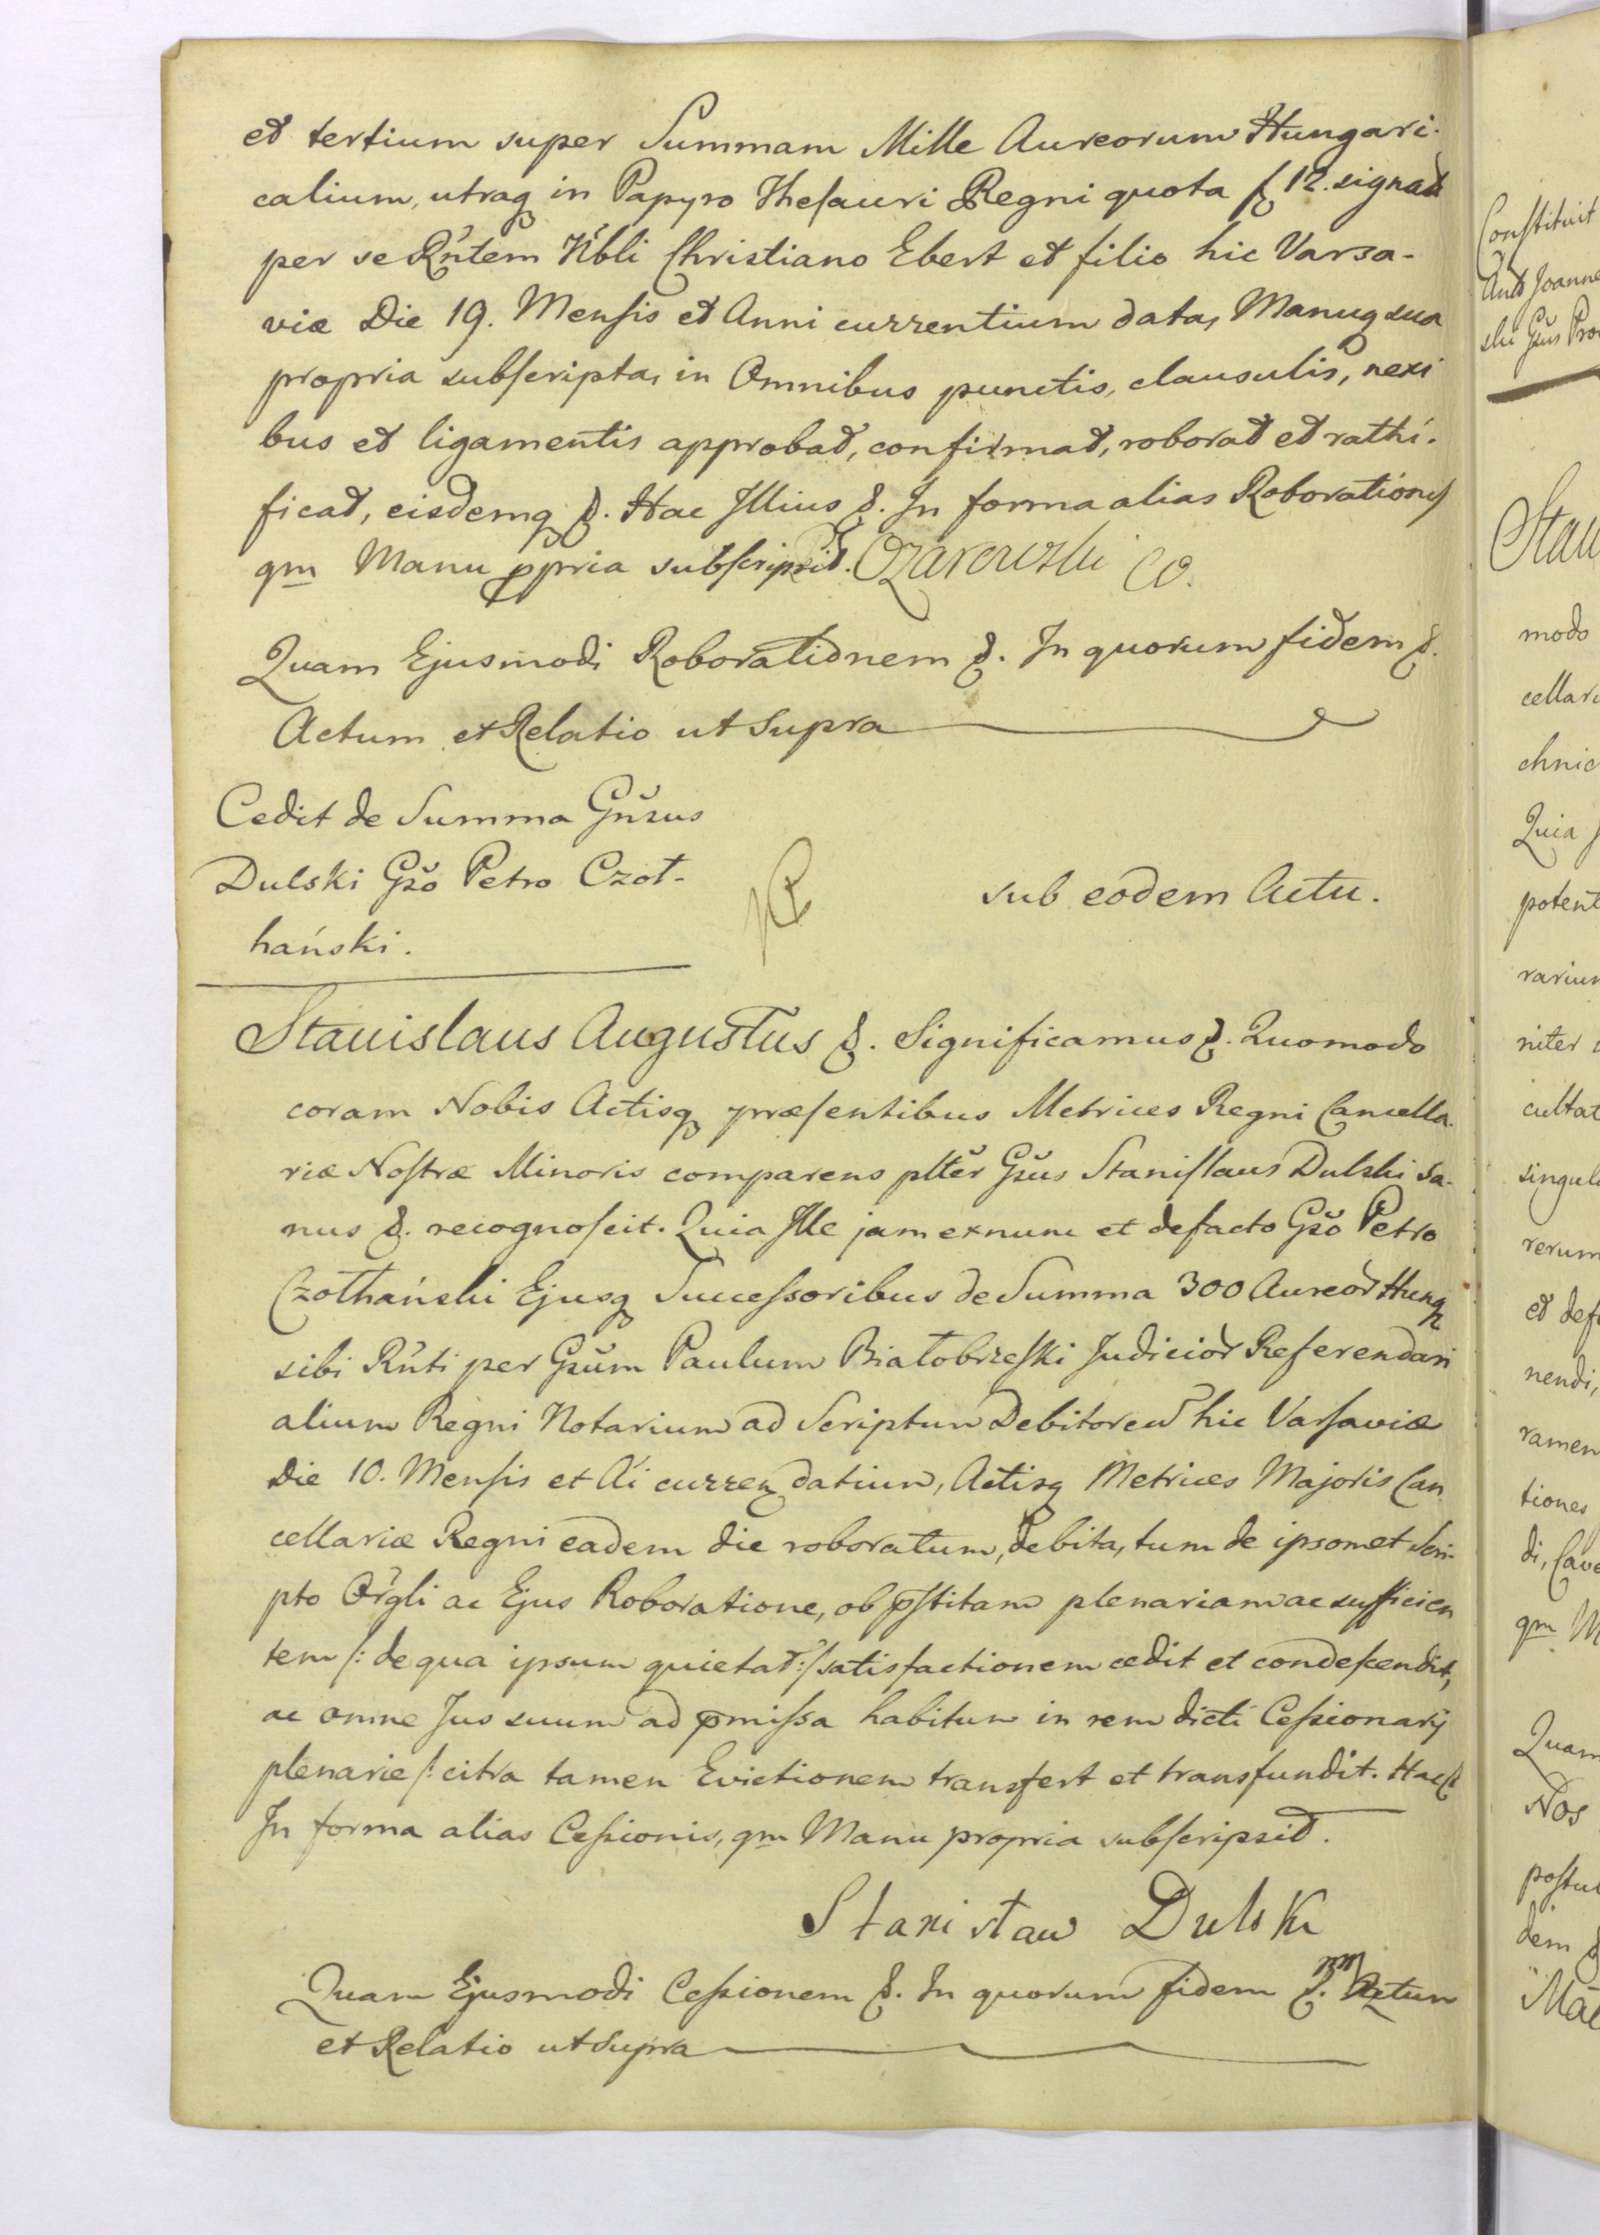 et tertium super Summam Mille Aureorum Hungari-
calium, utraq in Papyro Thesauri Regni quota f 12. signat
per se Rntem Nbli Christiano Ebert et filio hic Varsa-
viæ Die 19. Mensis et Anni currentium data, Manuq sua
propria subscripta, in Omnibus punctis, clausulis, nexi
bus et ligamentis approbat, confirmat, roborat et rathi-
ficat, eisdemq &. Hac Illius &. In forma alias Roborationis
qm Manu ppria subscripsit. Ożarowski
Quam Ejusmodi Roborationem &. In quorum fidem &.
Actum et Relatio ut Supra
Cedit de Summa Gnrsus
Dulski Gso Petro Czoł-
hański.
sub eodem Actu.
Stanislaus Augustus &. Significamus &. Quomodo
coram Nobis Actisq præsentibus Metrices Regni Cancella-
riæ Nostræ Minoris comparens pltěr Gsus Stanislaus Dulski sa-
nus &. recognoscit. Quia Ille jam exnunc et defacto Gso Petro
Czołhański Ejusq Successoribus de Summa 300 Aureor Hung
sibi Rnti per Gsum Paulum Białobrzeski Judicior Referendari
alium Regni Notarium ad Scriptum Debitoreum hic Varsaviæ
Die 10. Mensis et Ai curren datum, Actisq Metrices Majoris Can
cellariæ Regni eadem die roboratum, debita, tum de ipsomet Scri-
pto Orgli ac Ejus Roboratione, ob pstitam plenariam ac sufficien
tem /: de qua ipsum quietat :/ satisfactionem cedit et condescendit,
ac omne Jus suum ad pmissa habitum in rem dicti Cessionarij
plenarie /: citra tamen Evictionem transfert et transfundit. Hac &
In forma alias Cessionis, qm Manu propria subscripsit.
Stanisław Dulski
Quam Ejusmodi Cessionem &. In quorum fidem &. Actum
et Relatio ut Supra
Constituit
Stan
modo
cellari
chnic
Quia
potent
rarium
niter
cultat
singul
rerum
et def
nendi,
ramen
tiones
di, Cave
qm M
Quam
Nos
postul
dem &